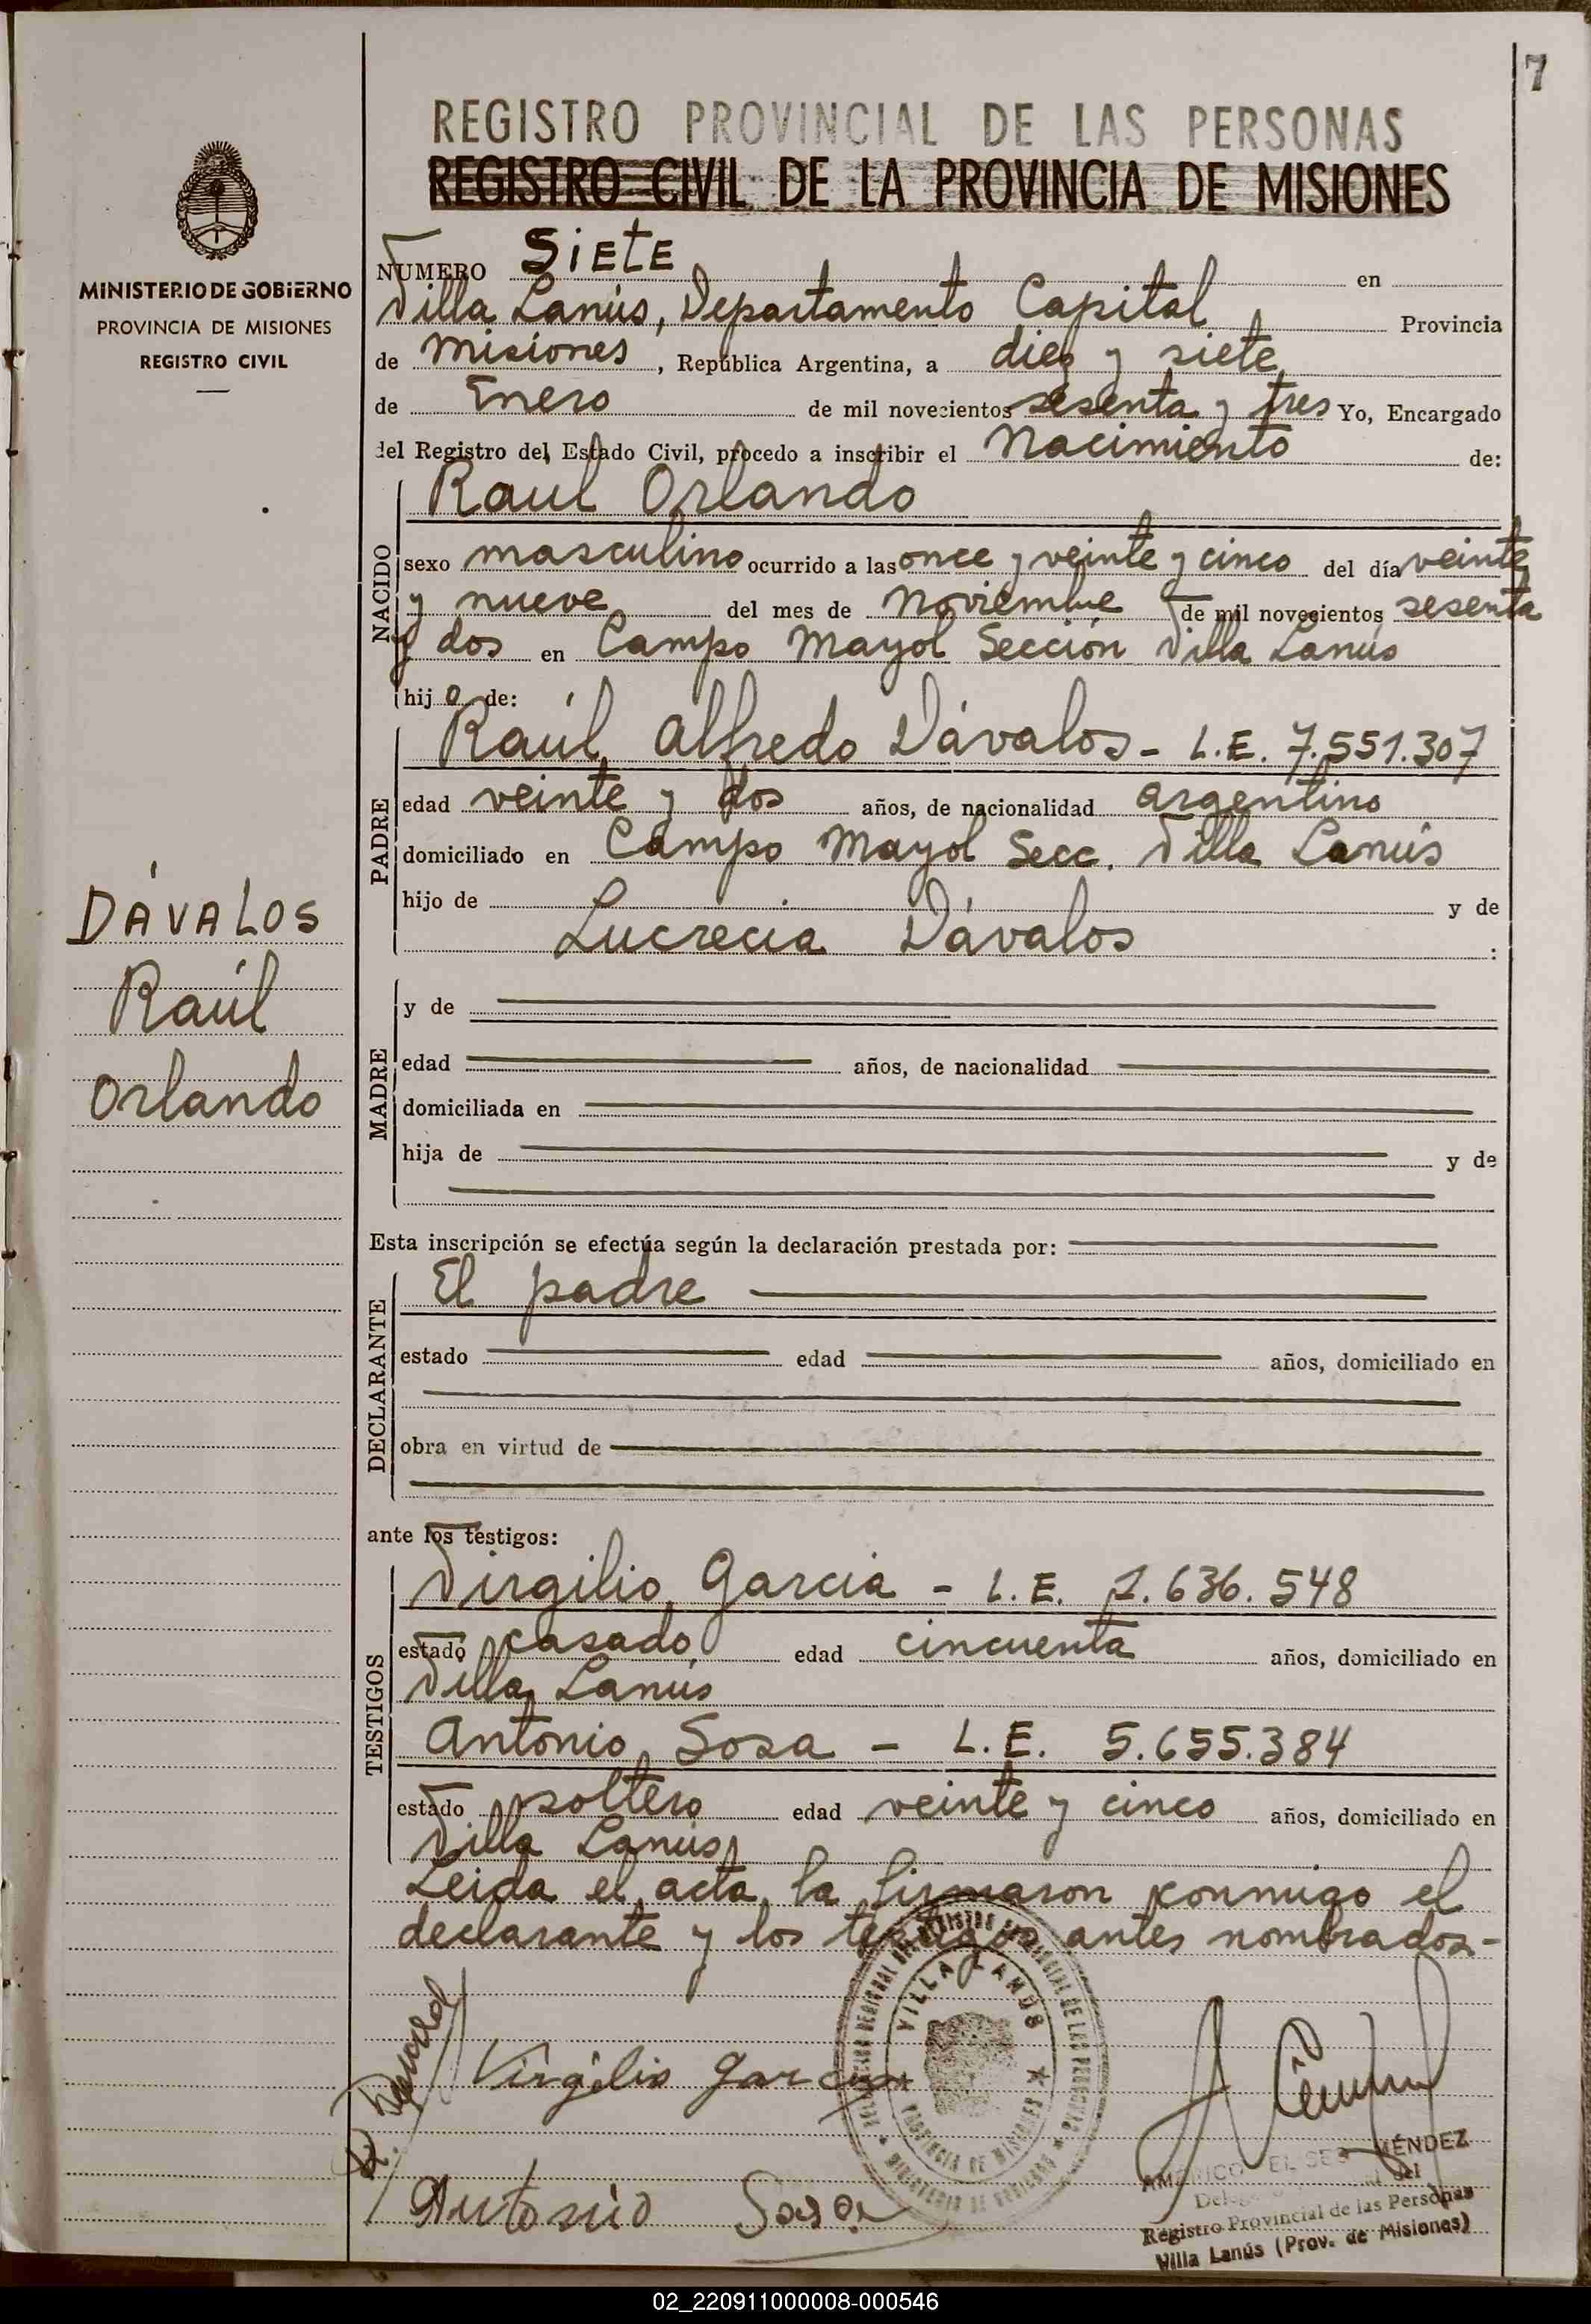 7
REGISTRO PROVINCIAL DE LAS PERSONAS
REGISTRO CIVIL DE LA PROVINCIA DE MISIONES
MINISTERIO DE GOBIERNO
PROVINCIA DE MISIONES
REGISTRO CIVIL
NUMERO SIETE en
Villa Lanús, Departamento Capital Provincia
de Misiones, República Argentina, a diez y siete
de Enero de mil novecientos sesenta y tres Yo, Encargado
del Registro del Estado Civil, procedo a inscribir el Nacimiento de:
NACIDO
Raúl Orlando
sexo masculino ocurrido a las once y veinte y cinco del día veinte
y nueve del mes de Noviembre de mil novecientos sesenta
y dos en Campo Mayol Sección Villa Lanús
hijo de:
PADRE
Raúl Alfredo Dávalos - L.E. 7.551.307
edad veinte y dos años, de nacionalidad argentino
domiciliado en Campo Mayol Secc. Villa Lanús
hijo de y de
Lucrecia Dávalos :
DÁVALOS
Raúl
Orlando
MADRE
y de
edad años, de nacionalidad
domiciliada en
hija de y de
Esta inscripción se efectúa según la declaración prestada por:
DECLARANTE
El padre
estado edad años, domiciliado en
obra en virtud de
ante los testigos:
TESTIGOS
Virgilio Garcia - L.E. 7.636.548
estado casado edad cincuenta años, domiciliado en
Villa Lanús
Antonio Sosa - L.E. 5.655.384
estado soltero edad veinte y cinco años, domiciliado en
Villa Lanús
Leida el acta, la firmaron conmigo el
declarante y los testigos antes nombrados-
VILLA LANÚS
PROVINCIA DE MISIONES
Virgilio Garcia
Antonio Sosa
MÉNDEZ
Registro Provincial de las Personas
Villa Lanús (Prov. de Misiones)
02_220911000008-000546